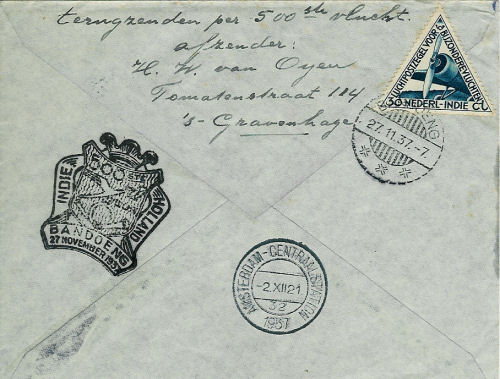 terugzenden per 500ste vlucht.
afzender:
H. W. van Oyen
Tomatenstraat 184
's-Gravenhage
LUCHTPOSTZEGEL VOOR BIJZONDERE VLUCHTEN
30 NEDERL-INDIE CT
27.11.37.-7.
INDIE
500STE
HOLLAND
BANDOENG
27 NOVEMBER 1937
AMSTERDAM-CENTRAALSTATION
-2.XII 21
32
1937